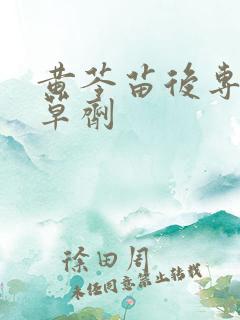 黄荃苗後專
草劑
徐田周
未任同意禁止转载